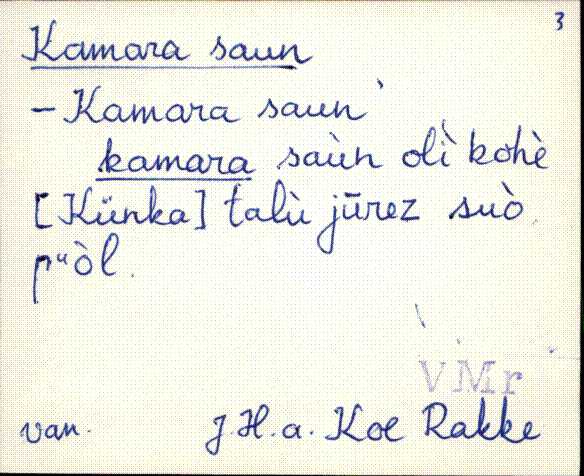 3
Kamara saun
- Kamara saun
kamara saùn olì kohè
[Künka] talù jūrez suò
pᵘòl.
VMr
van. J.H.a. Koe Rakke